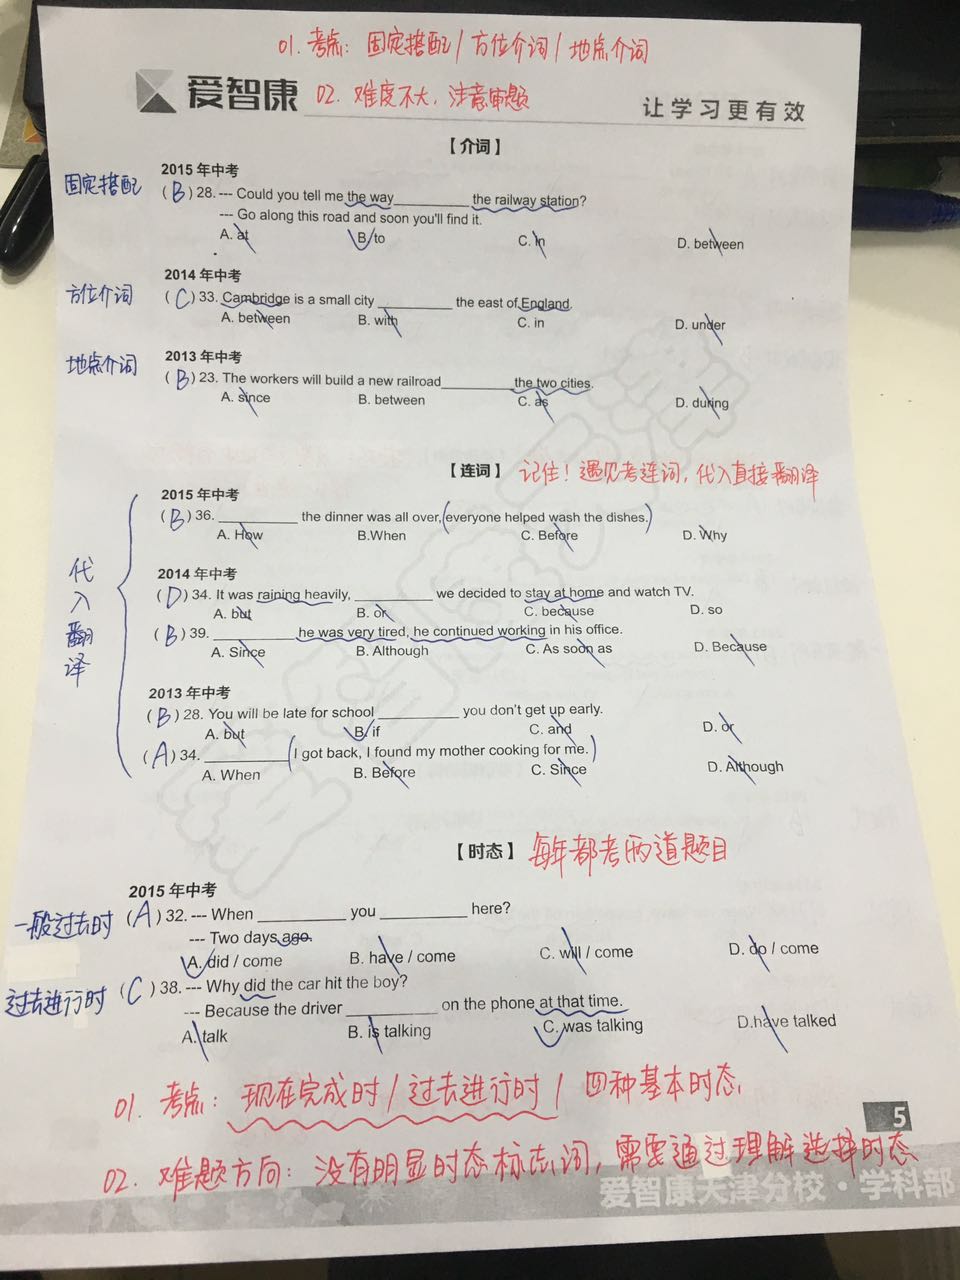 01. 考点: 固定搭配 / 方位介词 / 地点介词
爱智康 02. 难度不大, 注意审题 让学习更有效
【介词】
2015 年中考
固定搭配 (B) 28. --- Could you tell me the way__________ the railway station?
--- Go along this road and soon you'll find it.
A. at B. to C. in D. between
2014 年中考
方位介词 (C) 33. Cambridge is a small city __________ the east of England.
A. between B. with C. in D. under
2013 年中考
地点介词 (B) 23. The workers will build a new railroad__________the two cities.
A. since B. between C. as D. during
【连词】 记住! 遇见考连词, 代入直接翻译
2015 年中考
(B) 36. __________ the dinner was all over, (everyone helped wash the dishes.)
A. How B.When C. Before D. Why
代入翻译
2014 年中考
(D) 34. It was raining heavily, __________ we decided to stay at home and watch TV.
A. but B. or C. because D. so
(B) 39. __________ he was very tired, he continued working in his office.
A. Since B. Although C. As soon as D. Because
2013 年中考
(B) 28. You will be late for school __________ you don't get up early.
A. but B. if C. and D. or
(A) 34. __________ (I got back, I found my mother cooking for me.)
A. When B. Before C. Since D. Although
【时态】 每年都考两道题目
2015 年中考
一般过去时 (A) 32. --- When __________ you __________ here?
--- Two days ago.
A. did / come B. have / come C. will / come D. do / come
过去进行时 (C) 38. --- Why did the car hit the boy?
--- Because the driver __________ on the phone at that time.
A. talk B. is talking C. was talking D.have talked
01. 考点: 现在完成时 / 过去进行时 / 四种基本时态
5
02. 难题方向: 没有明显时态标志词, 需要通过理解选择时态
爱智康天津分校·学科部